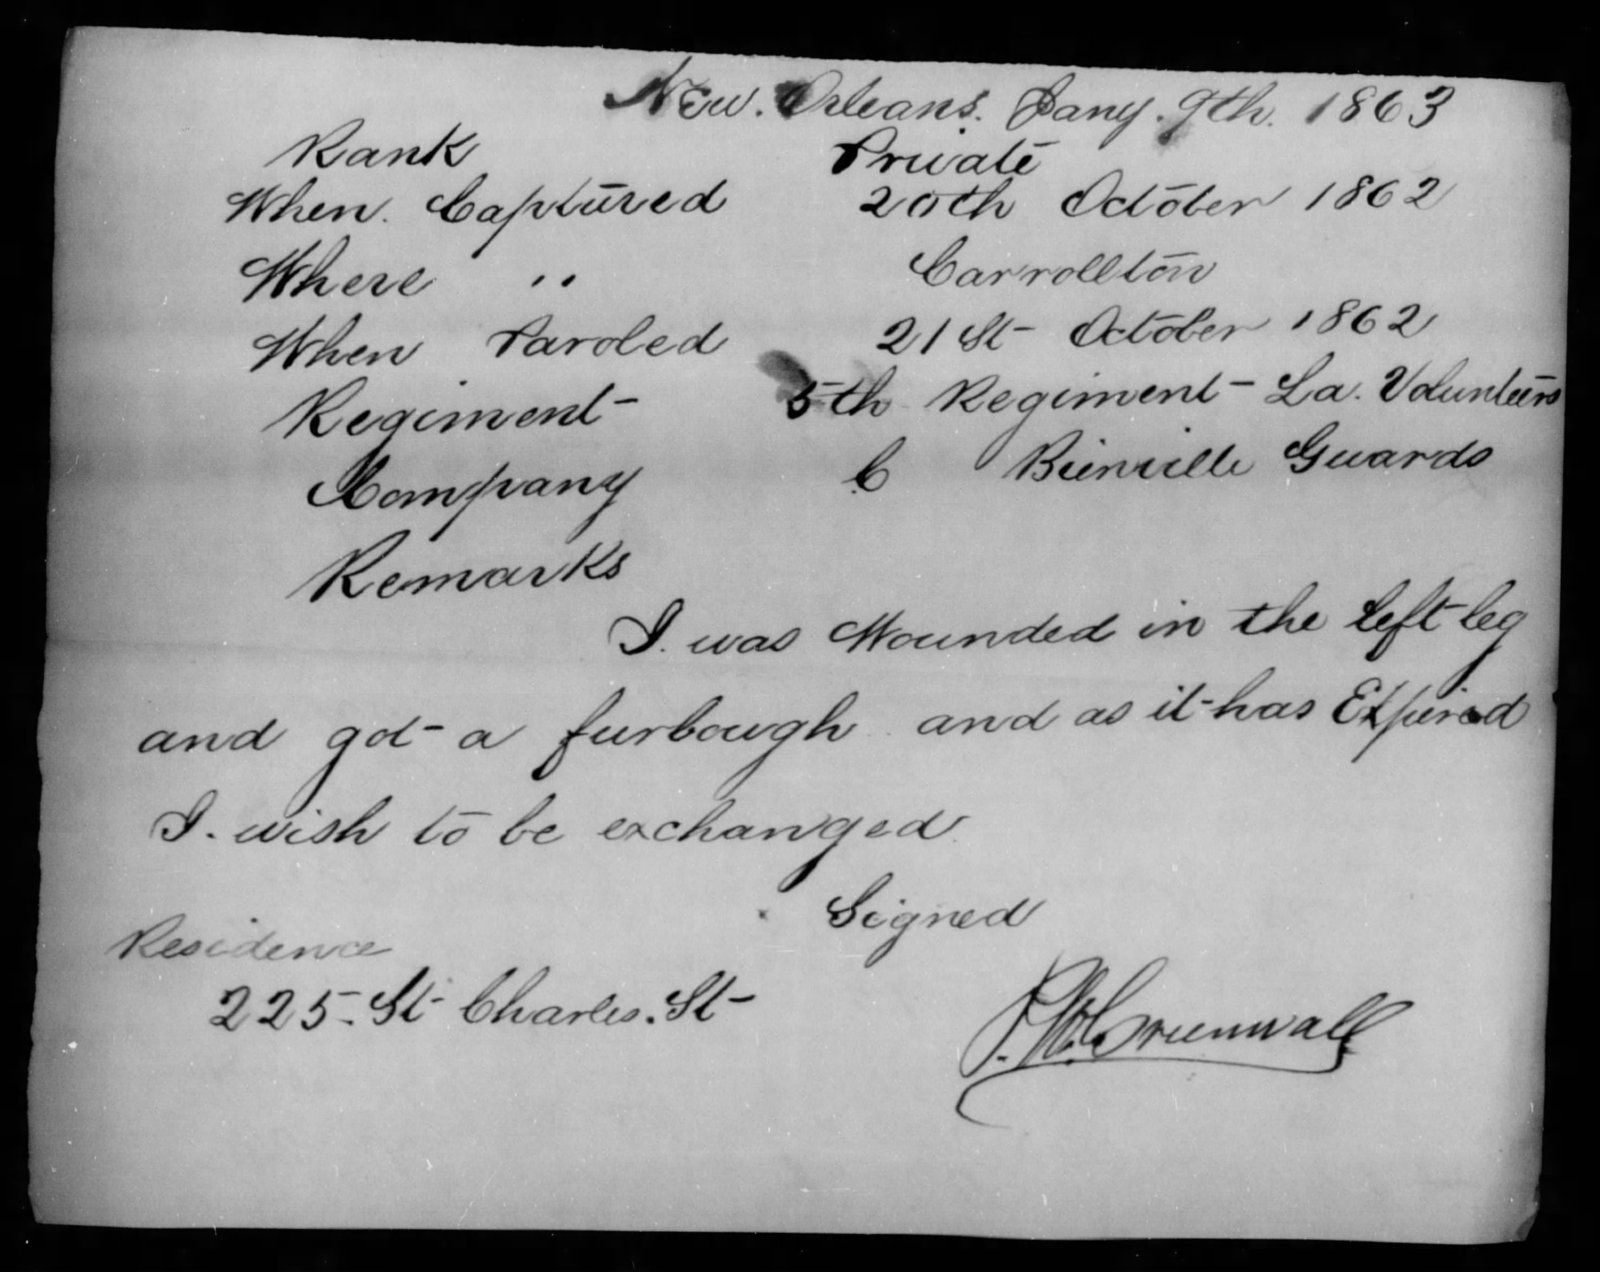 New. Orleans. Jany. 9th. 1863
Rank Private
When. Captured 20th October 1862
Where " Carrollton
When Paroled 21st October 1862
Regiment 5th Regiment La. Volunteers
Company C Bienville Guards
Remarks
I. was Wounded in the left leg
and got a furlough and as it has Expired
I. wish to be exchanged.
Signed
Residence
225. St Charles. St
Grunwall